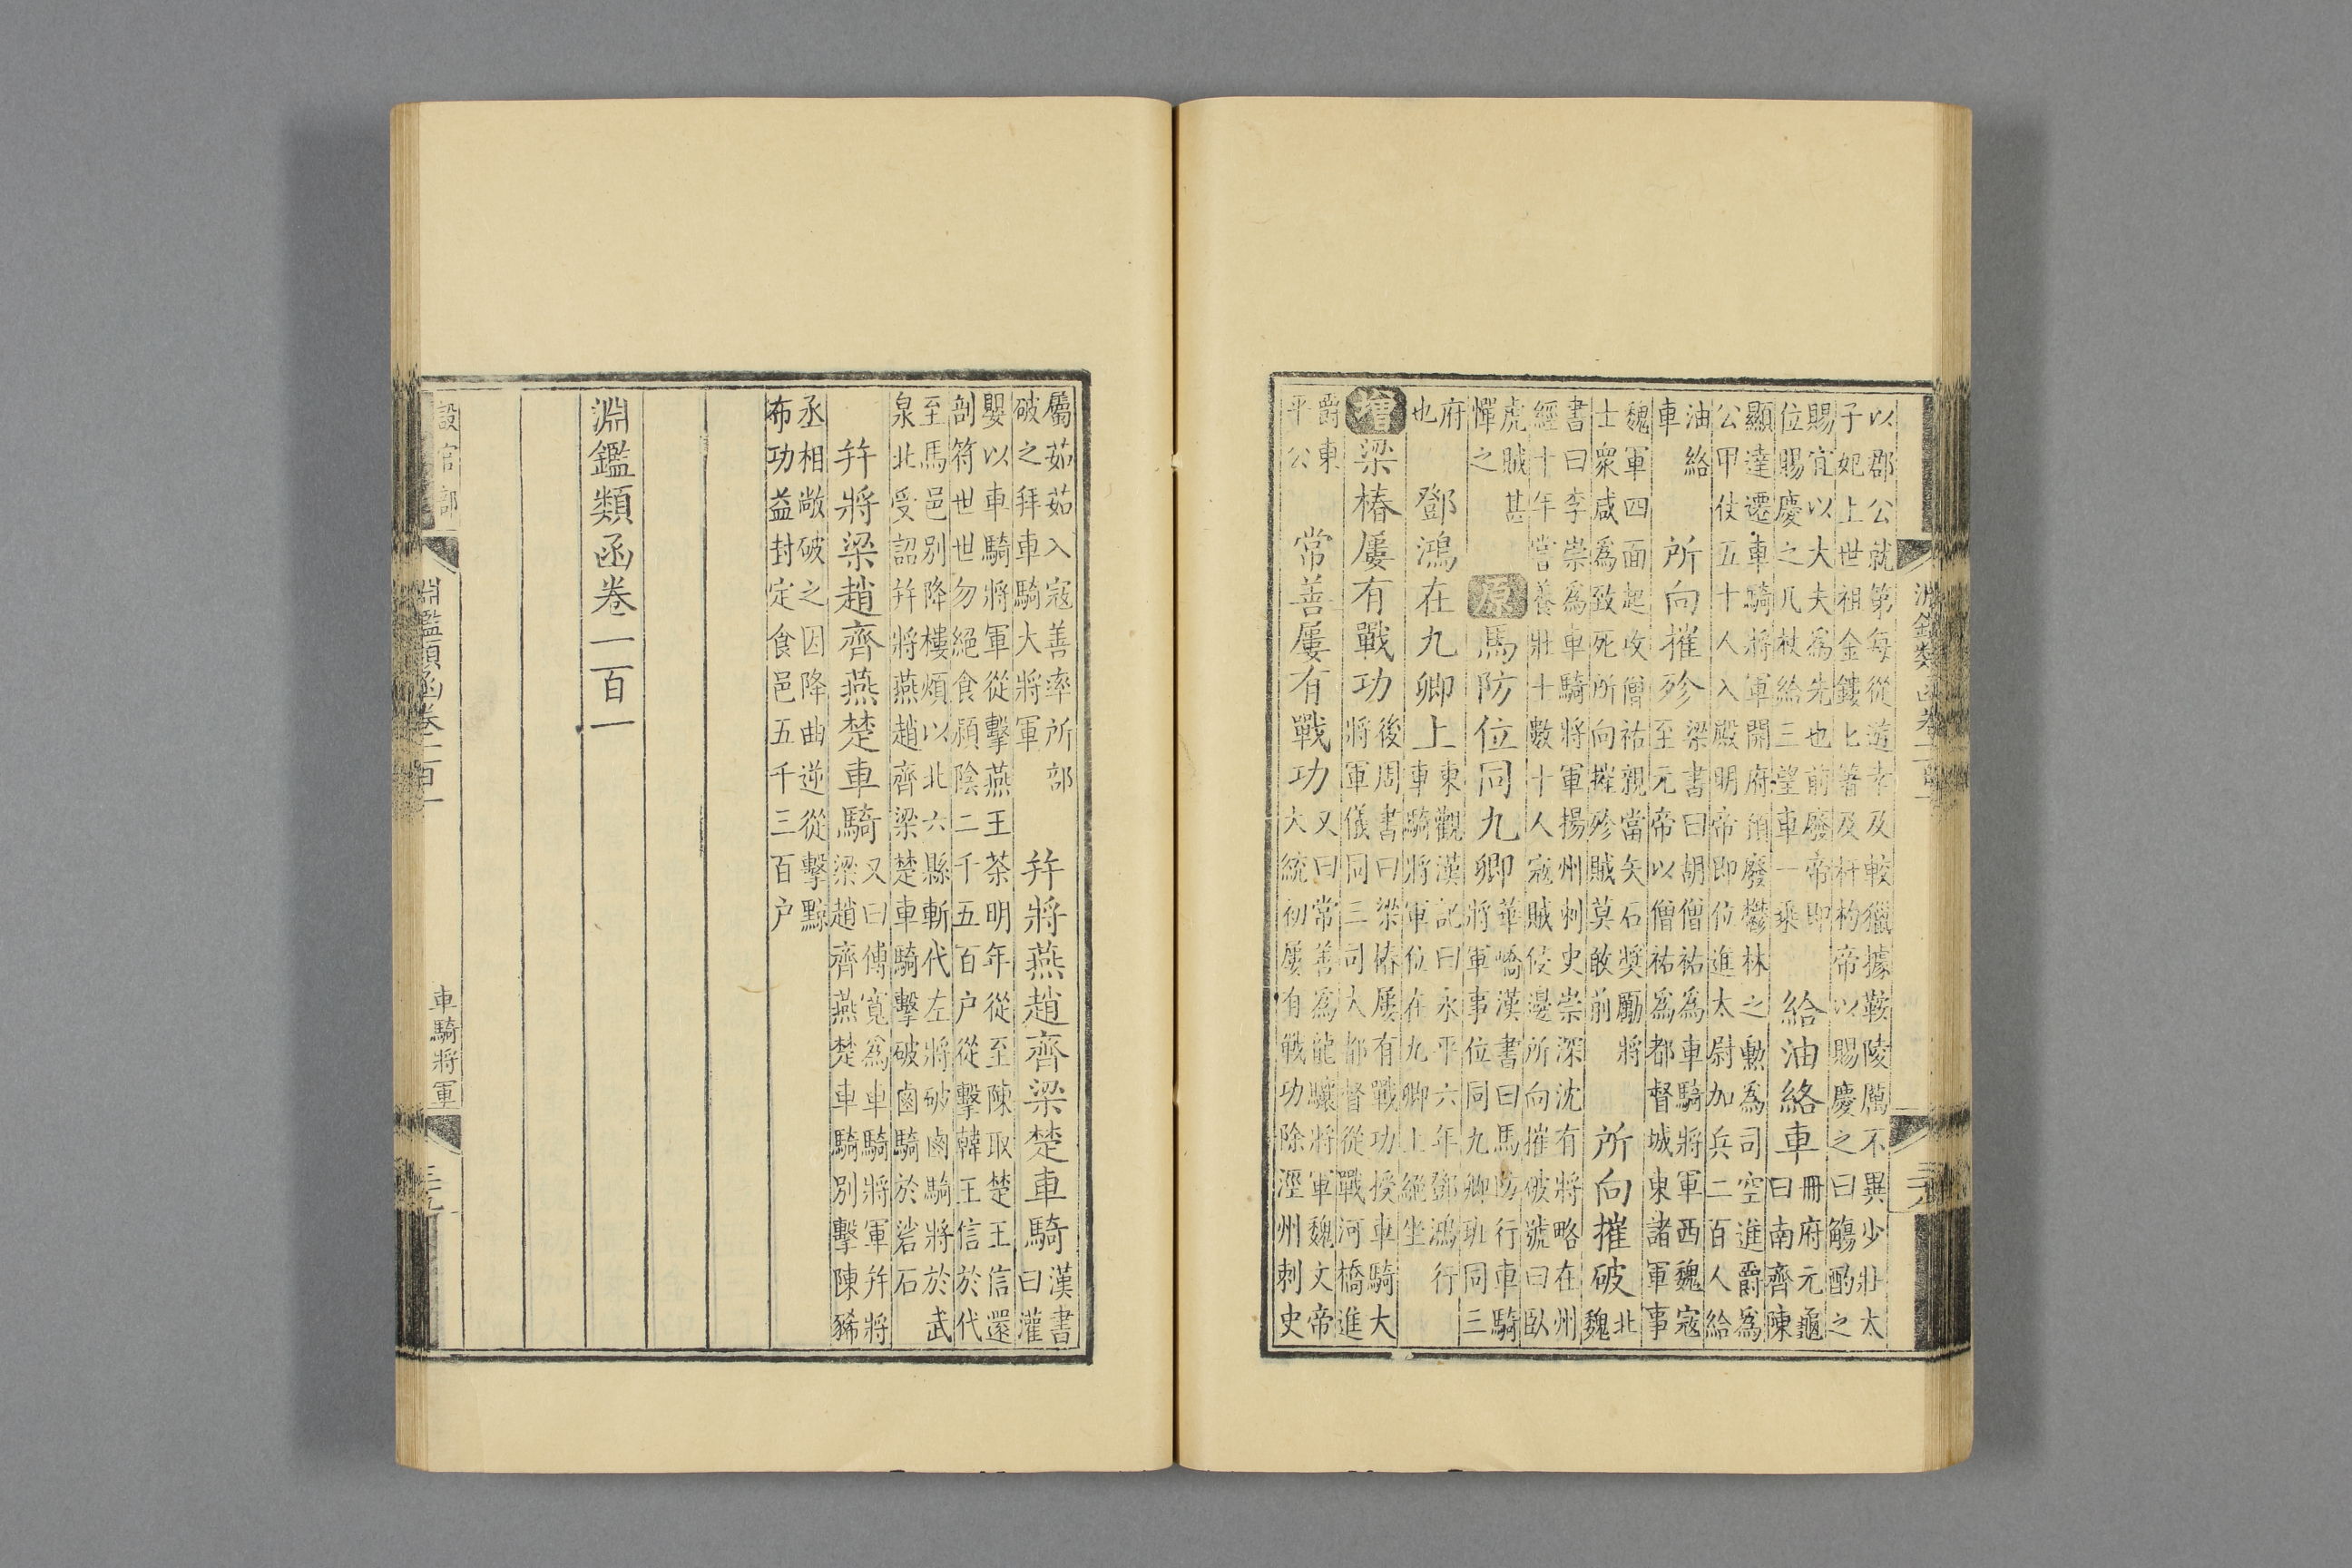 以郡公就第每從遊幸及較獵據鞍陵厲不異少壯太
子妃上世祖金鏤匕箸及杅杓帝以賜慶之曰觴酌之
賜宜以大夫爲先也前廢帝即
位賜慶之几杖給三望車一乘
給油絡車
冊府元龜
曰南齊陳
顯達遷車騎將軍開府廢鬱林之勳爲司空進爵爲
公甲仗五十人入殿明帝即位進太尉加兵二百人給
油絡
車
所向摧殄
梁書曰胡僧祐爲車騎將軍西魏寇
至元帝以僧祐爲都督城東諸軍事
魏軍四面起攻僧祐親當矢石獎勵將
士衆咸爲致死所向摧殄賊莫敢前
所向摧破
北
魏
書曰李崇爲車騎將軍揚州刺史崇深沈有將略在州
經十年嘗養壯十數十人寇賊侵邊所向摧破號曰臥
虎賊甚
憚之
原馬防位同九卿
華嶠漢書曰馬防行車騎
將軍事位同九卿班同三
府
也
鄧鴻在九卿上
東觀漢記曰永平六年鄧鴻行
車騎將軍位在九卿上絕坐
增梁椿屢有戰功
後周書曰梁椿屢有戰功授車騎大
將軍儀同三司大都督從戰河橋進
爵東
平公
常善屢有戰功
又曰常善爲龍驤將軍魏文帝
大統初屢有戰功除涇州刺史
屬茹茹入寇善率所部
破之拜車騎大將軍
幷將燕趙齊梁楚車騎
漢書
曰灌
嬰以車騎將軍從擊燕王荼明年從至陳取楚王信還
剖符世世勿絕食潁陰二千五百户從擊韓王信於代
至馬邑別降樓煩以北六縣斬代左將破鹵騎將於武
泉北受詔幷將燕趙齊梁楚車騎擊破鹵騎於硰石
幷將梁趙齊燕楚車騎
又曰傅寬爲車騎將軍幷將
梁趙齊燕楚車騎別擊陳豨
丞相敞破之因降曲逆從擊黥
布功益封定食邑五千三百户
淵鑑類函卷一百一
設官部
淵鑑類函卷一百一
車騎將軍